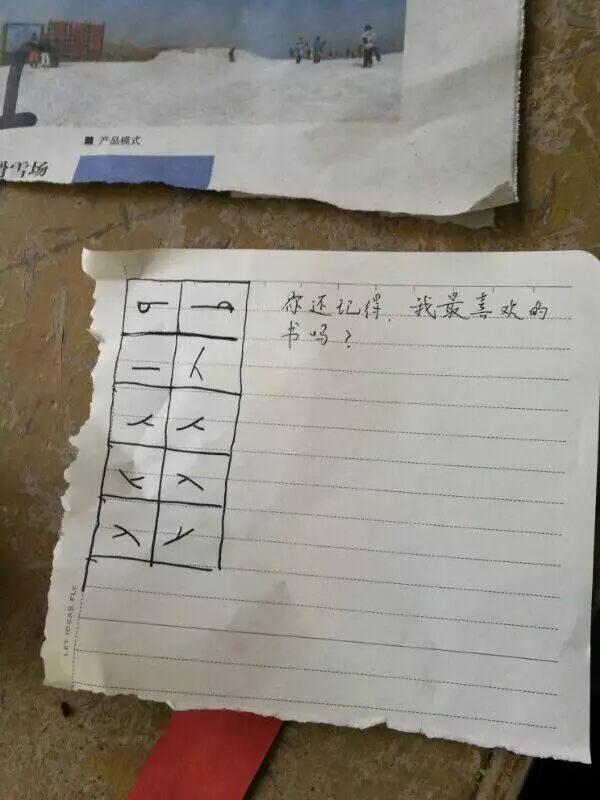 ■ 产品模式
滑雪场
你还记得，我最喜欢的
书吗？
LET IDEAS FLY